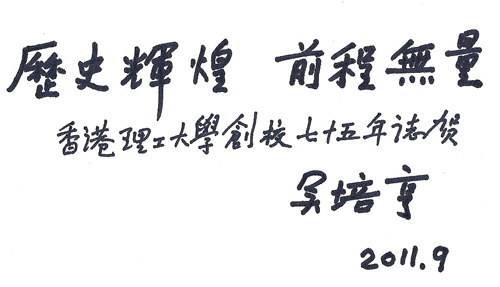 歷史輝煌 前程無量
香港理工大學創校七十五年誌贺
吴培亨
2011.9